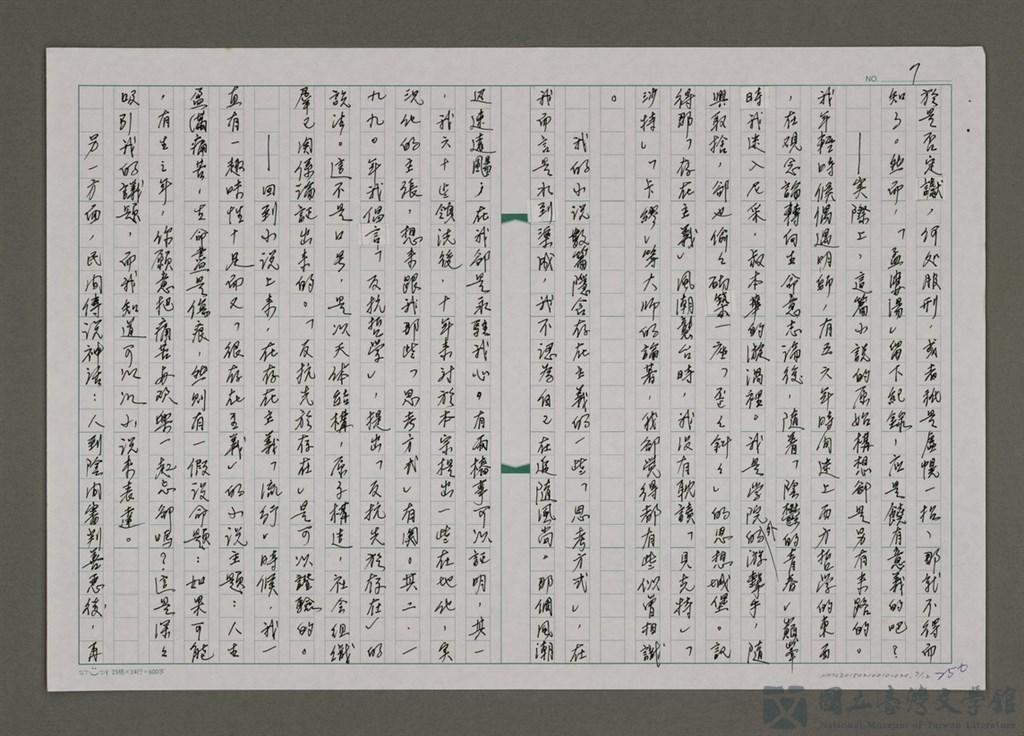 NO. 7
於是否定議,何处服刑,或者祇是虛幌一招,那我不得而
知了。然而,「孟婆湯」留下紀錄,应是饒有意義的吧?
——实際上,這篇小説的原始構想卻是另有来路的。
我年輕時候偶遇明師,有五六年時间迷上西方哲学的東西
,在观念論轉向生命意志論後,隨着「陰鬱的青春」巔峯
時我迷入尼采、叔本華的漩渦裡。我是学院外的游擊手,隨
興取捨,卻也偷偷砌築一座「歪歪斜斜」的思想城堡。記
得那「存在主義」風潮襲台時,我沒有耽讀「貝克特」「
沙特」「卡繆」等大师的論著,我卻覚得都有些似曾相識
。
我的小説数篇隱含存在主義的一些「思考方式」,在
我而言是水到渠成,我不認為自己在追隨風尚。那個風潮
迟速遠颺,在我卻是永駐我心。有兩樁事可以証明,其一
,我六十岁領洗後,十年来对於本宗提出一些在地化,实
況化的主張,想来跟我那些「思考方式」有関。其二,一
九九〇年我倡言「反抗哲学」,提出「反抗先於存在」的
説法。這不是口号,是以天体結構,原子構造,社会組織
羣己関係論証出来的。「反抗先於存在」是可以證驗的。
——回到小説上来,在存在主義「流行」時候,我一
直有一趣味性十足而又「很存在主義」的小説主題:人生
盈滿痛苦,生命盡是傷痕,然則有一假設命題:如果可能
,有生之年,你願意把痛苦与欢樂一起忘卻嗎?這是深深
吸引我的議題,而我知道可以以小説来表達。
另一方面,民间傳説神话:人到陰间審判善悪後,再
25横×24行=600字
國立臺灣文学館
National Museum of Taiwan Literature